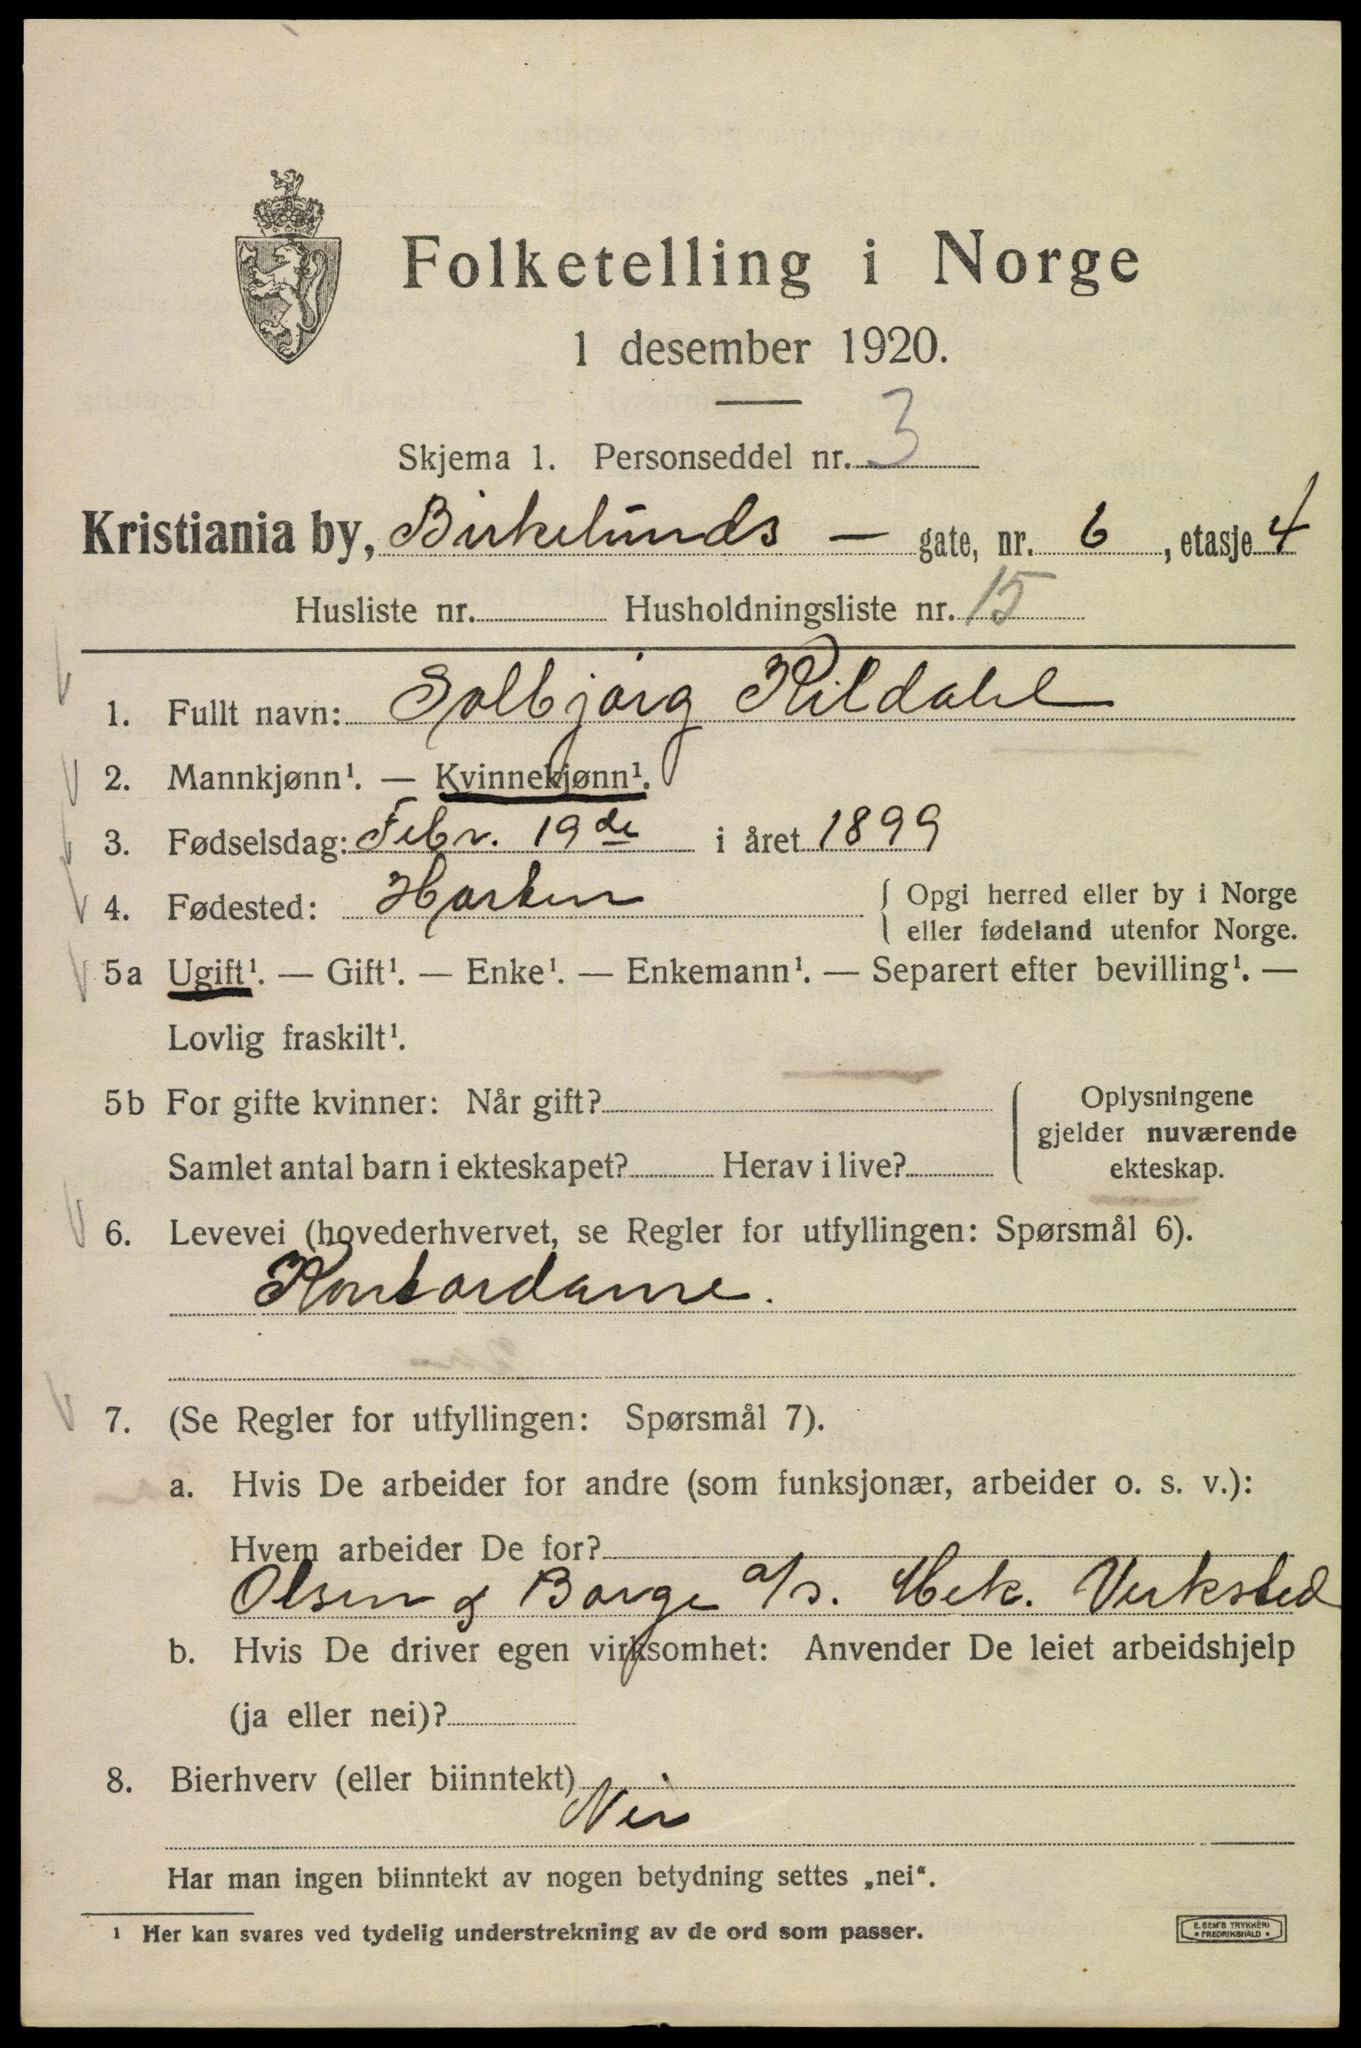 Folketelling i Norge
1 desember 1920.
Skjema 1. Personseddel nr. 3
Kristiania by, Birkelunds — gate, nr. 6, etasje 4
Husliste nr. Husholdningsliste nr. 15
1. Fullt navn: Solbjørg Kildahl
2. Mannkjønn¹. — Kvinnekjønn¹.
3. Fødselsdag: Febr. 19de i året 1899
4. Fødested: { Opgi herred eller by i Norge
eller fødeland utenfor Norge.
5a Ugift¹. — Gift¹. — Enke¹. — Enkemann¹. — Separert efter bevilling¹. —
Lovlig fraskilt¹.
5b For gifte kvinner: Når gift? Oplysningene
gjelder nuværende
Samlet antal barn i ekteskapet? Herav i live? ekteskap.
6. Levevei (hovederhvervet, se Regler for utfyllingen: Spørsmål 6).
Kontordame.
7. (Se Regler for utfyllingen: Spørsmål 7).
a. Hvis De arbeider for andre (som funksjonær, arbeider o. s. v.):
Hvem arbeider De for?
Olsen & Borge a/s. Mek. Verksted
b. Hvis De driver egen virksomhet: Anvender De leiet arbeidshjelp
(ja eller nei)?
8. Bierhverv (eller biinntekt)
Nei
Har man ingen biinntekt av nogen betydning settes „nei".
¹ Her kan svares ved tydelig understrekning av de ord som passer.
E. SEM'S TRYKKERI
* FREDRIKSHALD *